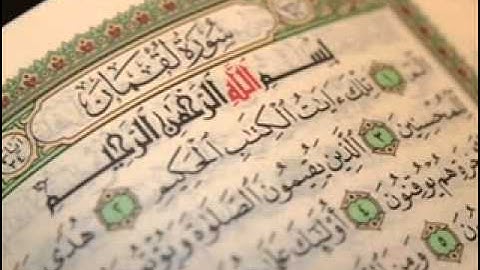 سُورَةُ لُقْمَانَ
بسم الله الرحمن الرحيم
الٓمٓ ١ تِلْكَ ءَايَٰتُ ٱلْكِتَٰبِ ٱلْحَكِيمِ ٢ هُدًى
لِّلْمُحْسِنِينَ ٣ ٱلَّذِينَ يُقِيمُونَ ٱلصَّلَوٰةَ وَيُؤْتُونَ
هُمْ يُوقِنُونَ ٤ أُو۟لَٰٓئِكَ عَلَىٰ
٥ وَمِنَ